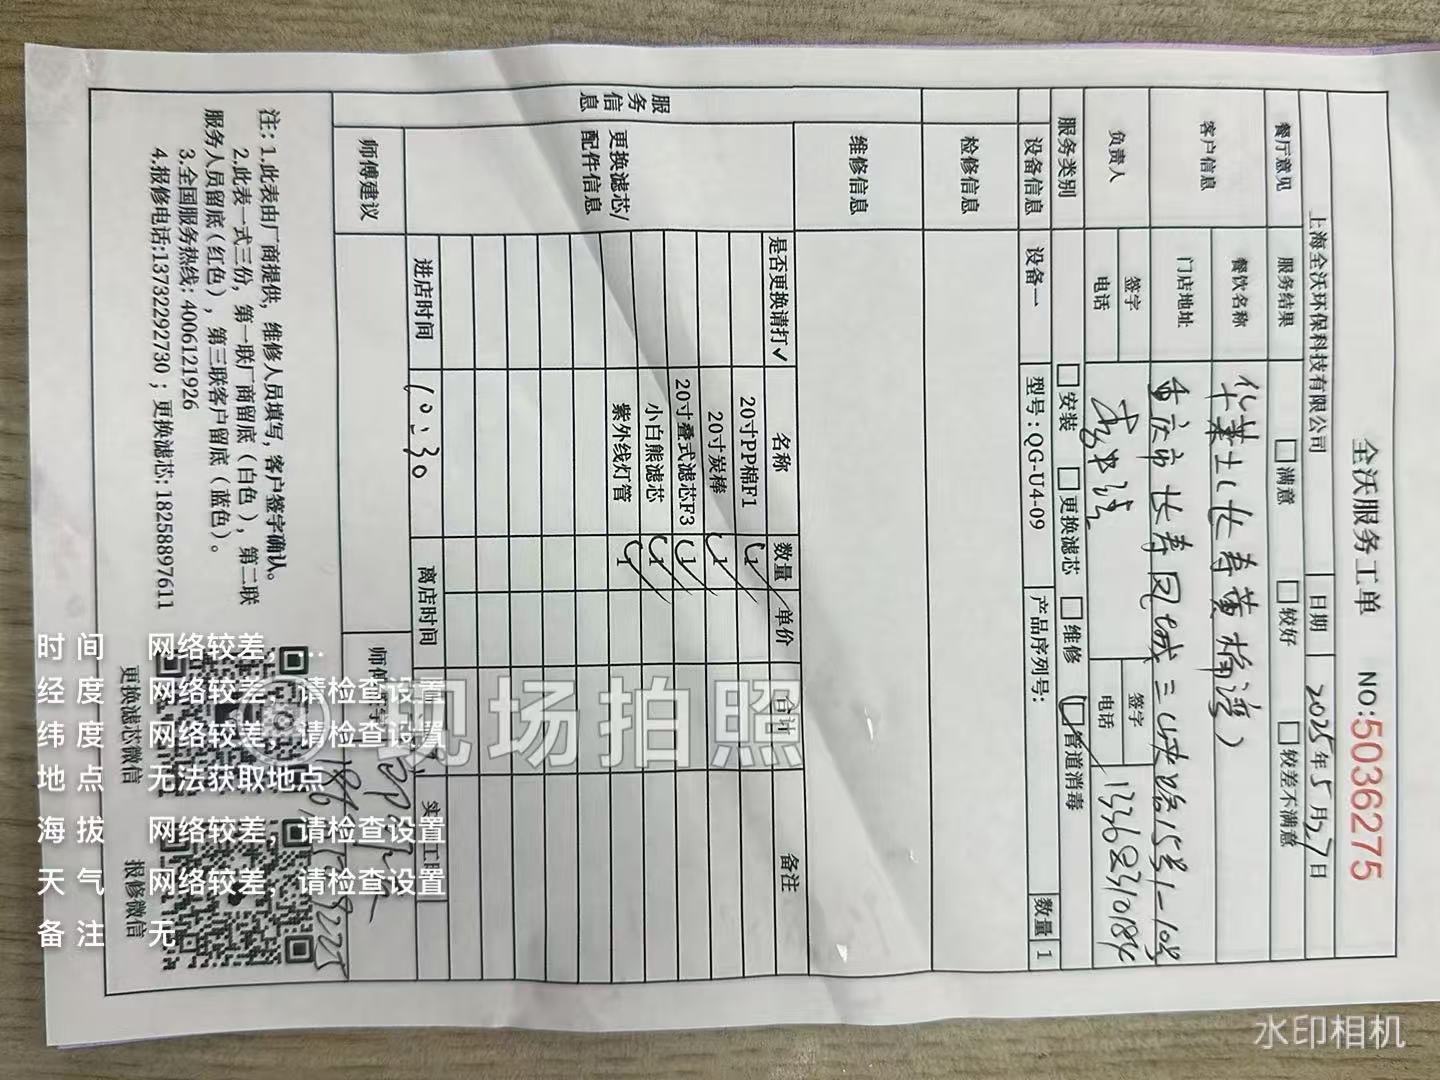 全沃服务工单 NO:5036275
上海全沃环保科技有限公司 日期 2025年5月27日
餐厅意见 服务结果 满意 较好 较差不满意
客户信息 餐饮名称 华莱士(长寿黄桷湾)
门店地址 重庆市长寿凤城三峡路15号1-108
负责人 签字 签字
电话 电话 13368310184
服务类别 安装 更换滤芯 维修 管道消毒
设备信息 设备一 型号:QG-U4-09 产品序列号: 数量 1
检修信息
维修信息
服务信息
更换滤芯/配件信息
是否更换请打✓ 名称 数量 单价 合计 备注
20寸PP棉F1
20寸炭棒
20寸叠式滤芯F3
小白熊滤芯
紫外线灯管
进店时间 10:30 离店时间
师傅建议
注:1.此表由厂商提供,维修人员填写,客户签字确认。
2.此表一式三份,第一联厂商留底(白色),第二联
服务人员留底(红色),第三联客户留底(蓝色)。
3.全国服务热线:4006121926
4.报修电话:13732292730;更换滤芯:18258897611
更换滤芯微信 报修微信
现场拍照
时间 网络较差,...
经度 网络较差,请检查设置
纬度 网络较差,请检查设置
地点 无法获取地点
海拔 网络较差,请检查设置
天气 网络较差,请检查设置
备注 无
水印相机